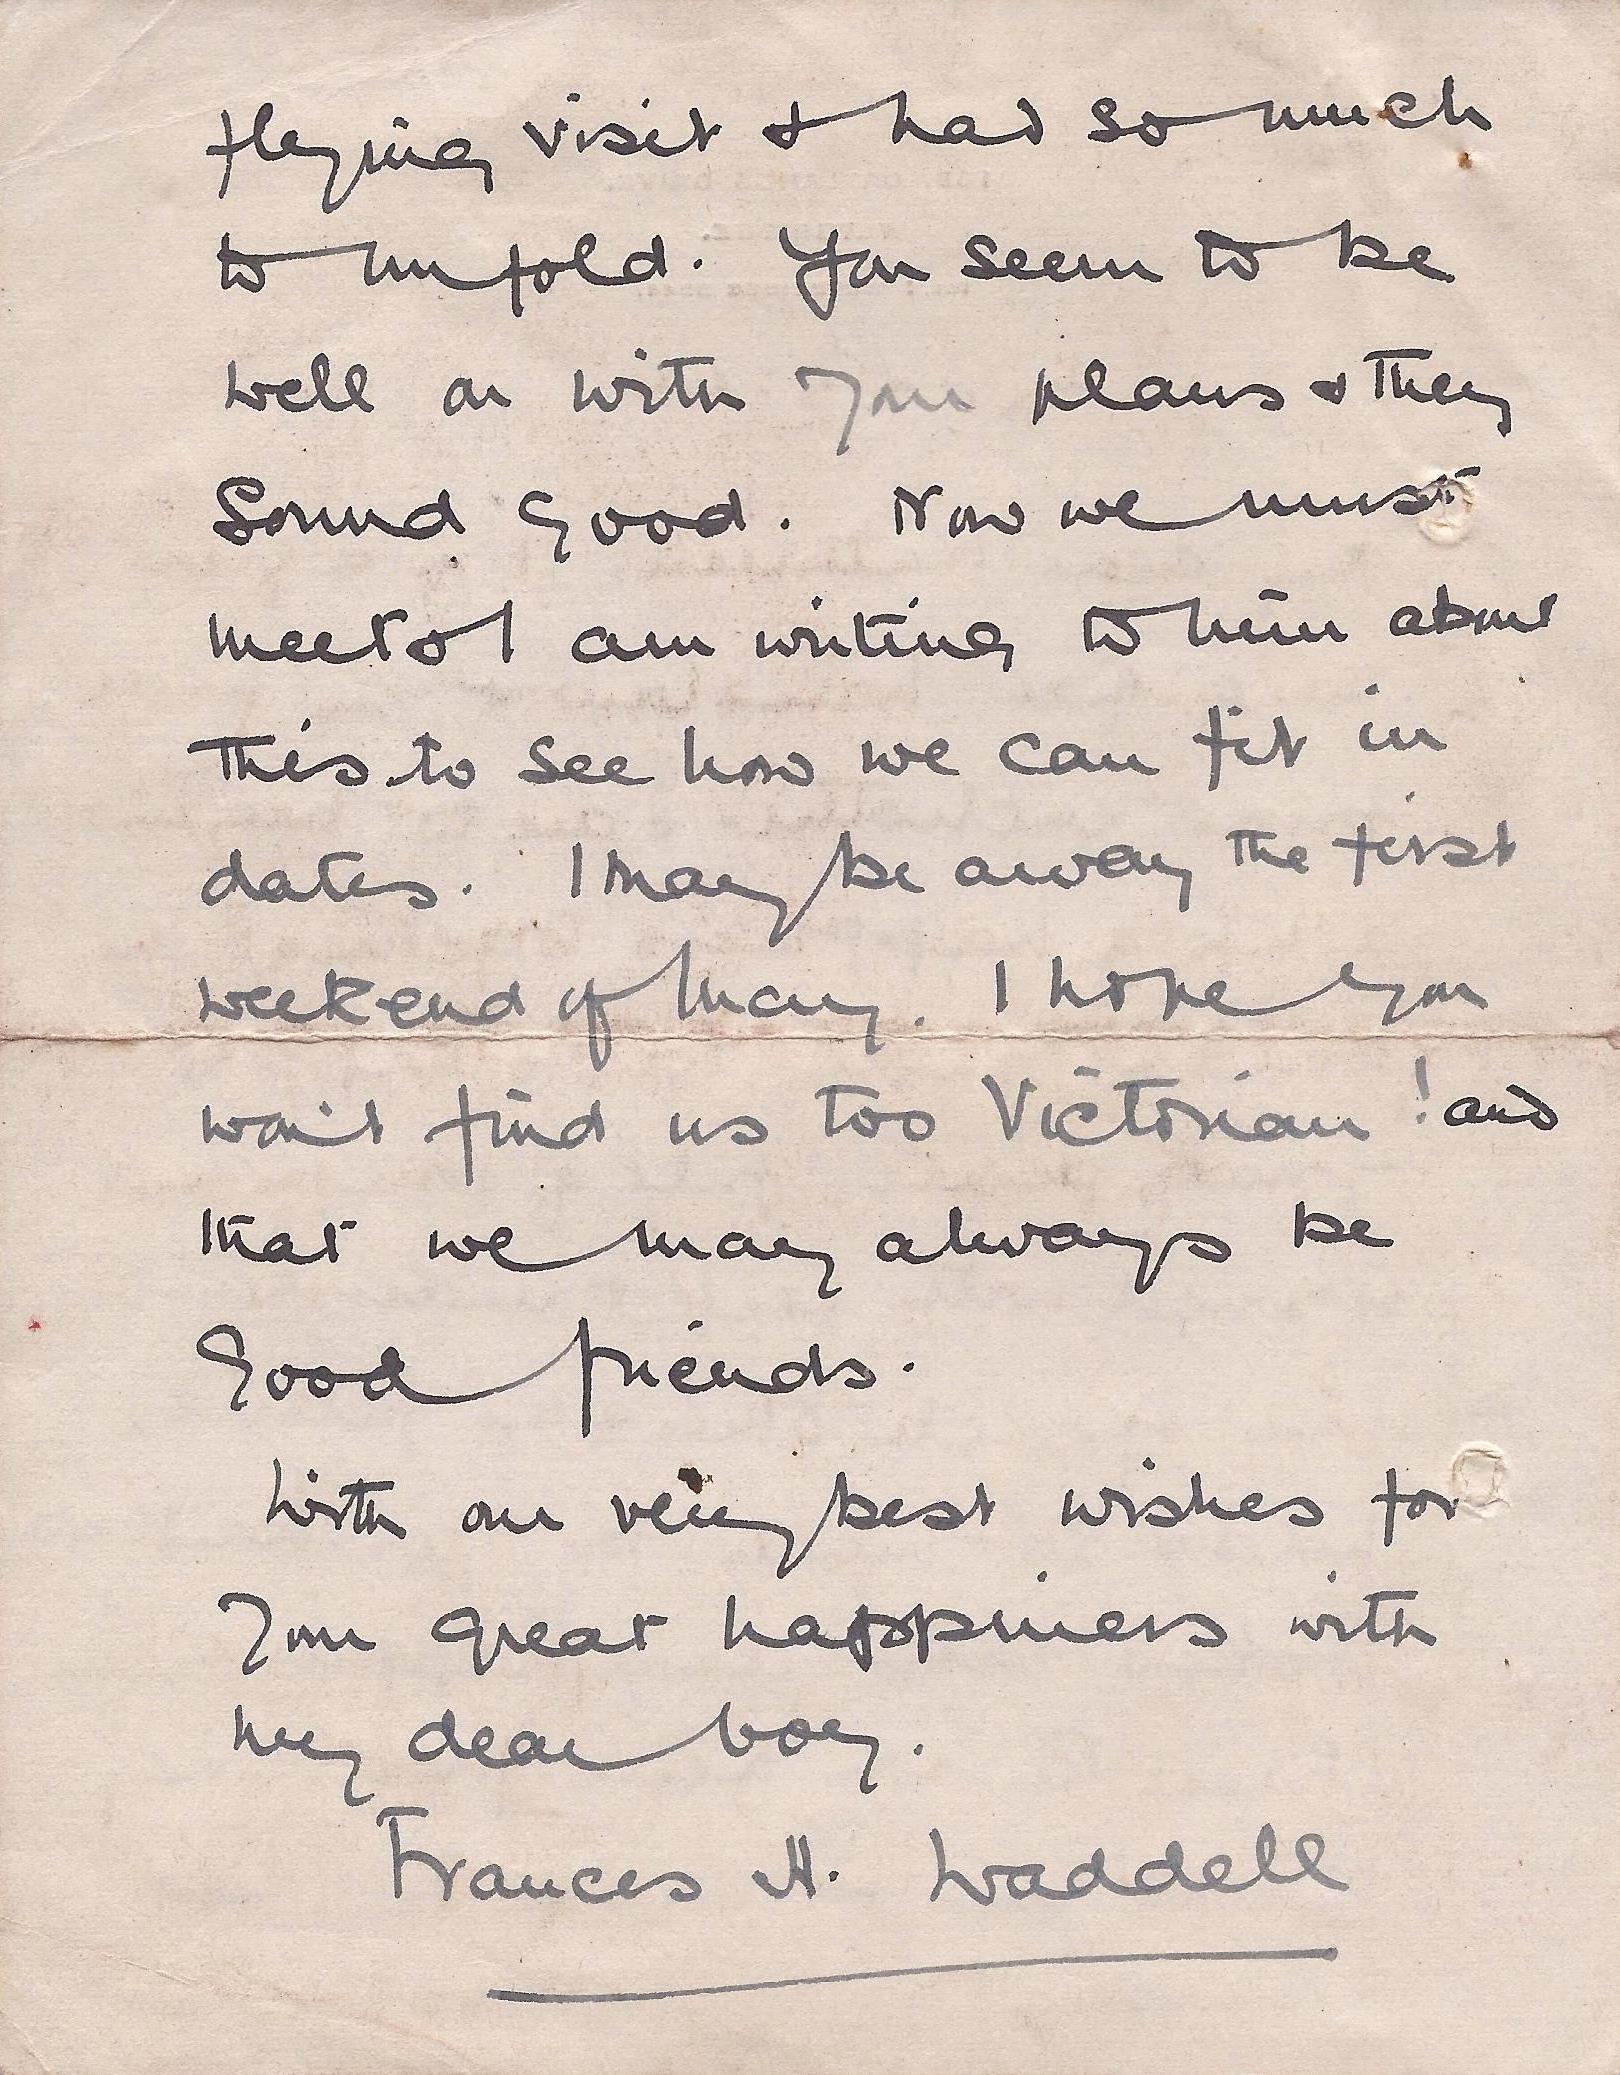 flying visit & had so much
to unfold. You seem to be
well on with your plans & they
sound good. Now we must
meet & I am writing to him about
this to see how we can fit in
dates. I may be away the first
weekend of May. I hope you
won't find us too Victorian! and
that we may always be
good friends.
With our very best wishes for
your great happiness with
my dear boy.
Frances H. Waddell